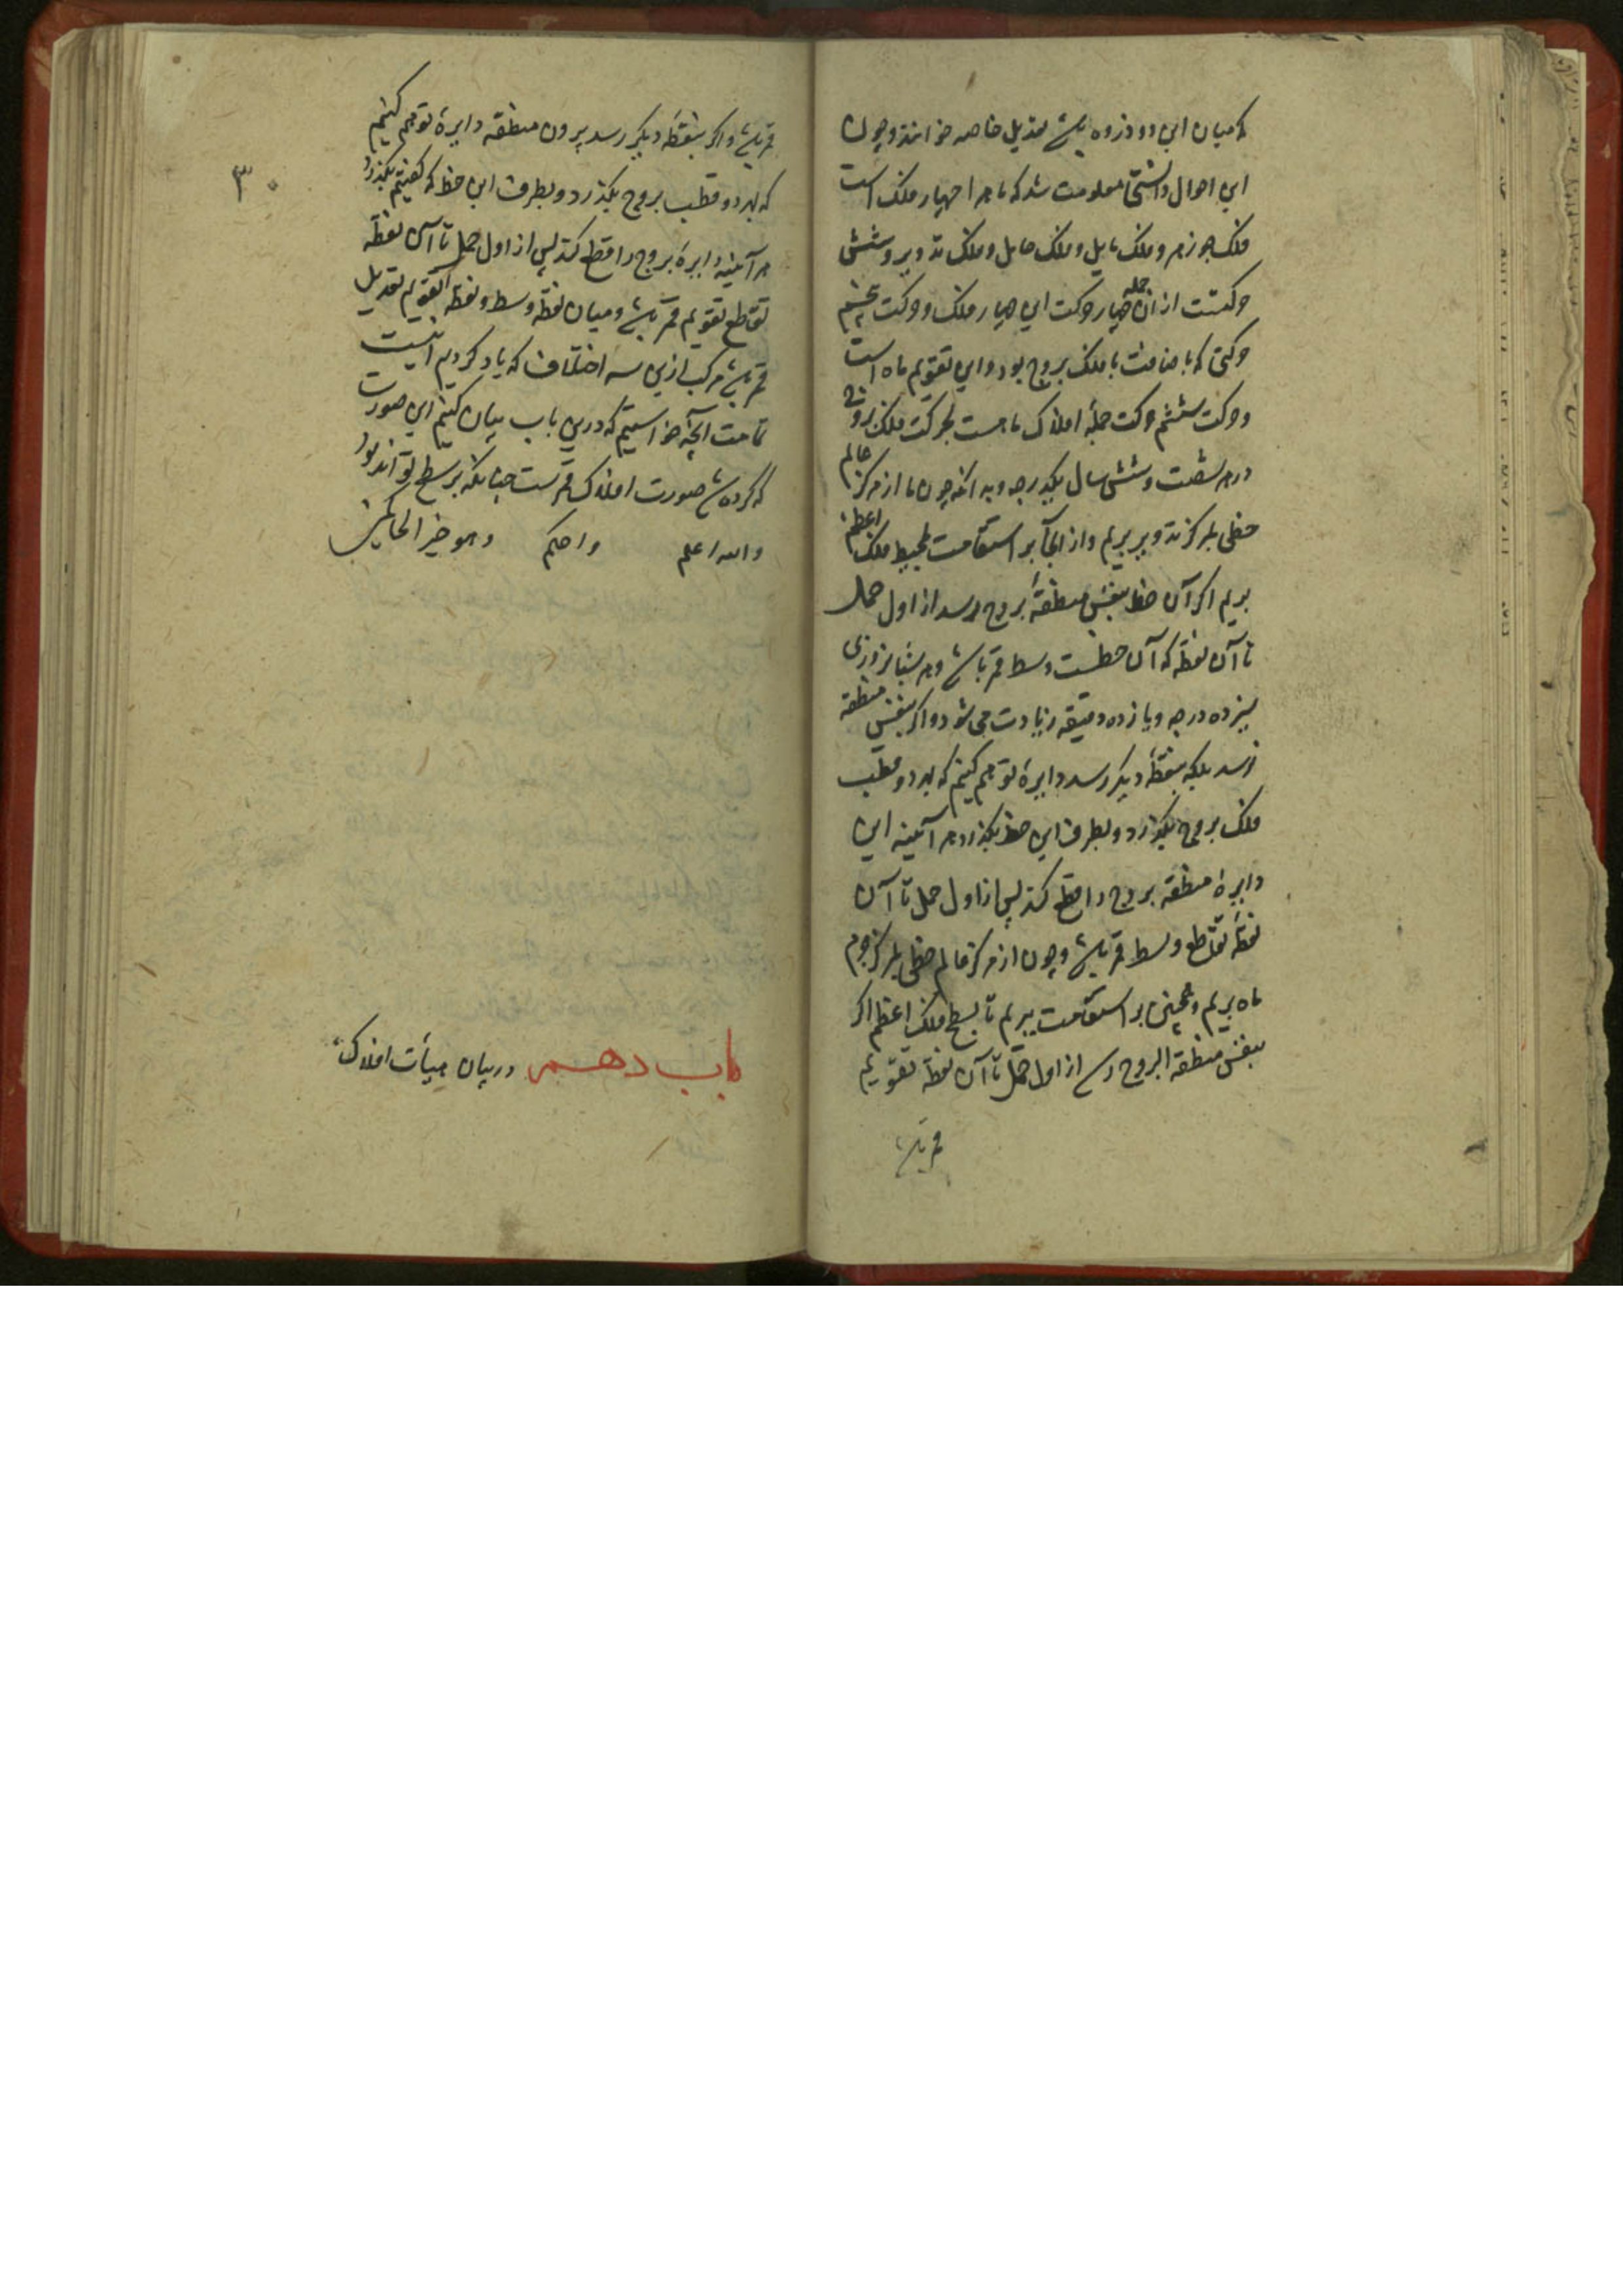 که میان این دو ذروه باشد تعدیل خاصه خوانند و چون
این احوال دانستی معلومت شد که ماه را چهار فلک است
فلک جوزهر و فلک مایل و فلک حامل و فلک تدویر و شش
حرکتست از آن جمله چهار حرکت این چهار فلک و حرکت پنجم
حرکتی که باضافت با فلک بروج بود و این تقویم ماه است
و حرکت ششم حرکت جمله افلاک ماهست بحرکت فلک بروج
در هر شصت و شش سال یکدرجه و بدانکه چون ما از مرکز عالم
خطی بمرکز تدویر بریم و از آنجا بر استقامت بمحیط فلک اعظم
بریم اگر آن خط بنفس منطقهٔ بروج رسد از اول حمل
تا آن نقطه که آن خطست وسط قمر باشد و هر شبانروزی
سیزده درجه و یازده دقیقه زیادت می شود و اگر بنفس منطقه
نرسد بلکه بنقطهٔ دیگر رسد دایرهٔ توهم کنیم که بهر دو قطب
فلک بروج بگذرد و بطرف این خط بگذرد هر آئینه این
دایرهٔ منطقه بروج را قطع کند پس از اول حمل تا آن
نقطهٔ تقاطع وسط قمر باشد و چون از مرکز عالم خطی بمرکز جرم
ماه بریم و همچنین بر استقامت ببریم تا بسطح فلک اعظم اگر
بنفس منطقة البروج رسد از اول حمل تا آن نقطه تقویم
قمر باشد
۳۰
قمر باشد و اگر بنقطهٔ دیگر رسد بیرون منطقه دایرهٔ توهم کنیم
که بهر دو قطب بروج بگذرد و بطرف این خط که گفتیم بگذرد
هر آئینه دایرهٔ بروج را قطع کند پس از اول حمل تا آن نقطه
تقاطع تقویم قمر باشد و میان نقطه وسط و نقطه تقویم تعدیل
قمر باشد مرکب ازین سه اختلاف که یاد کردیم اینست
تمامت آنچه خواستیم که درین باب بیان کنیم این صورت
که کرده شد صورت افلاک قمرست چنانکه بر سطح تواند بود
والله اعلم واحکم وهو خیر الحاکمین
باب دهم در بیان هیأت افلاک